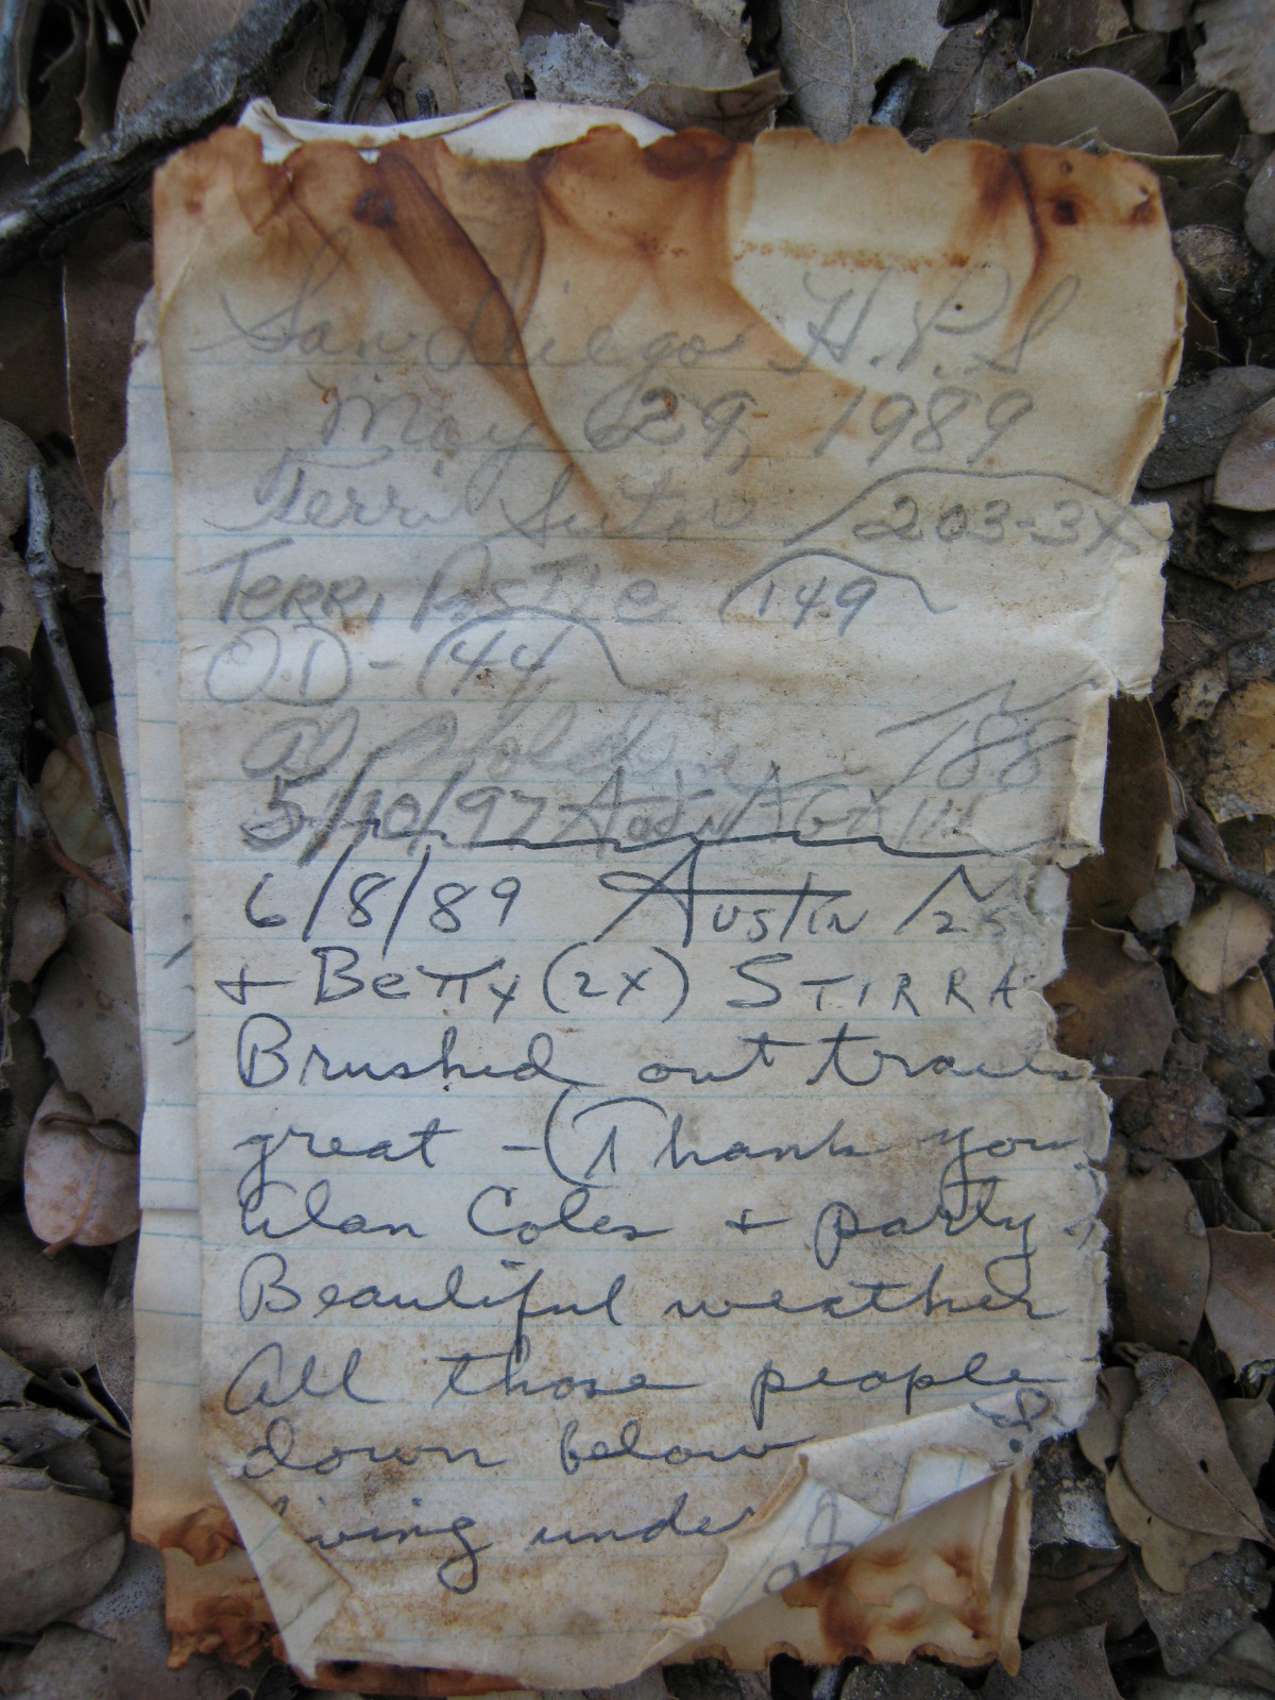 San Diego H.P.S
May 29, 1989
Terri Sutor 203-3X
TERRI ASTLE 149
O.D - 144
Al 188
5/10/97
6/8/89 AUSTIN
+ BETTY (2X) STIRRA
Brushed out trails
great - (Thank you
Alan Coles + party
Beautiful weather
All those people
down below
living under